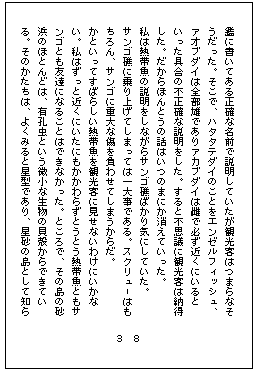 鑑に書いてある正確な名前で説明していたが観光客はつまらなそ
うだった。そこで、ハタタテダイのことをエンゼルフィッシュ、
アオブダイは全部雄でありアカブダイは雌で必ず近くにいると
いった具合の不正確な説明をした。すると不思議に観光客は納得
した。だからほんとうの話はいつのまにか消えていった。
私は熱帯魚の説明をしながらサンゴ礁ばかり気にしていた。
サンゴ礁に乗り上げてしまっては一大事である。スクリューはも
ちろん、サンゴに重大な傷を負わせてしまうからだ。
かといってすばらしい熱帯魚を観光客に見せないわけにいかな
い。私はずっと近くにいたにもかかわらずとうとう熱帯魚ともサ
ンゴとも友達になることはできなかった。ところで、その島の砂
浜のほとんどは、有孔虫という微小な生物の貝殻からできてい
る。そのかたちは、よくみると星型であり、星砂の島として知ら
38